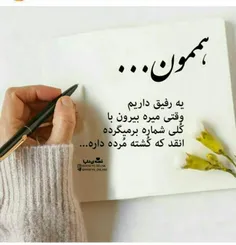 هممون...
یه رفیق داریم
وقتی میره بیرون با
کُلی شماره برمیگرده
انقد که کُشته مُرده داره...